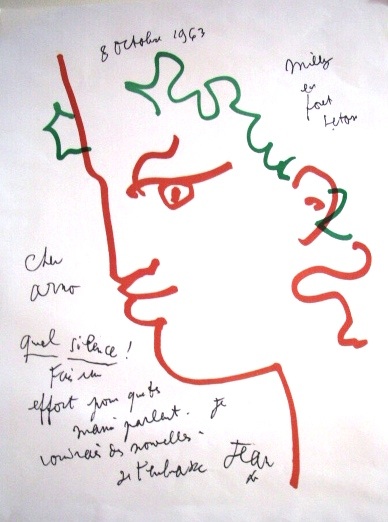 8 Octobre 1963
Milly
en
Cher
Arno
quel silence !
Fais un
effort pour que tes
mains parlent. Je
voudrais des nouvelles -
Je t'embrasse
Jean